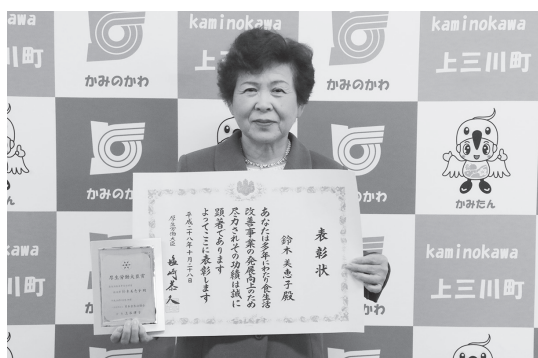 kaminokawa
kaminokawa
川町
上三川町
かみのかわ
かみのかわ
かみのか
かみたん
kaminokawa
上三川町
表彰状
鈴木美恵子殿
あなたは多年にわたり食生活
改善事業の発展向上のため
尽力されその功績は誠に
顕著であります
よってここに表彰します
平成二十八年十月二十八日
厚生労働大臣
塩崎恭久
厚生労働大臣賞